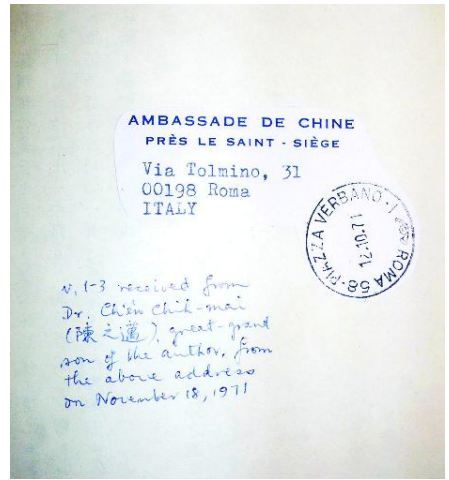 AMBASSADE DE CHINE
PRÈS LE SAINT - SIÈGE
Via Tolmino, 31
00198 Roma
ITALY
ROMA 58 - PIAZZA VERBANO - I
12.10.71
v. 1-3 received from
Dr. Ch'en Chih-mai
(陳之邁), great-grand
son of the author, from
the above address
on November 18, 1971